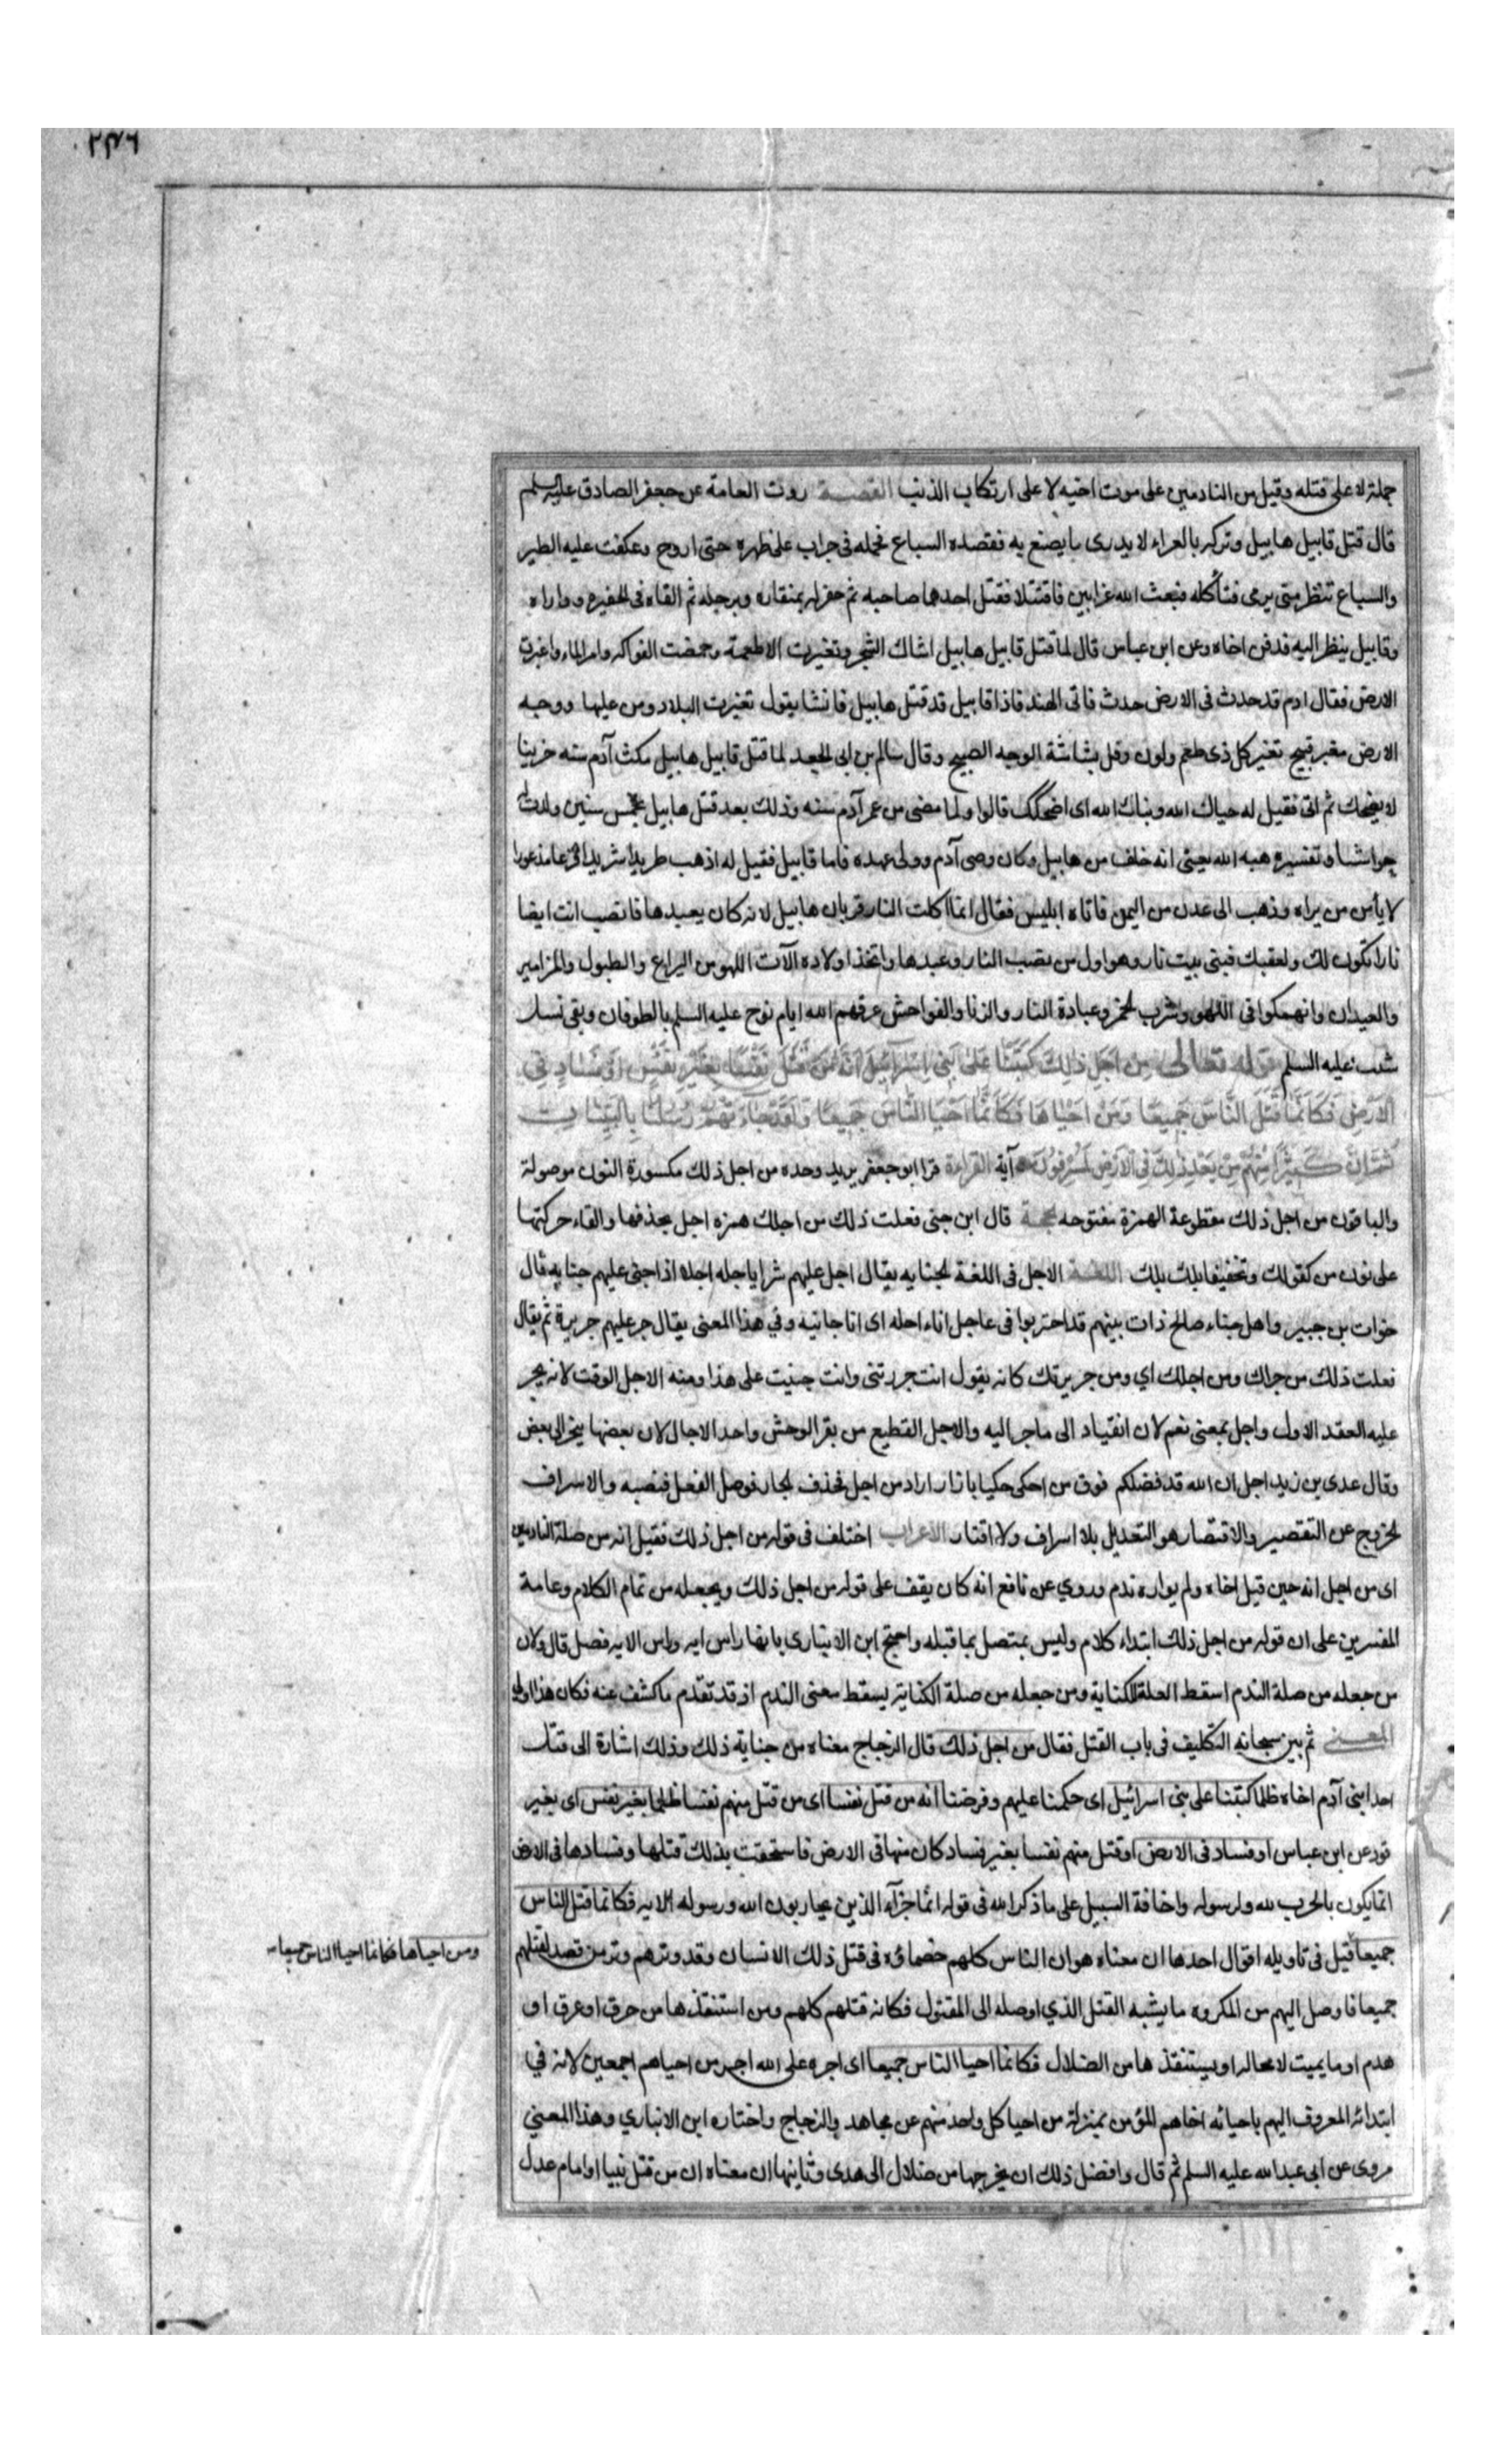 ٢٣٦
حمله لا على قتله وقيل من النادمين على موت اخيه لا على ارتكاب الذنب القصــة روت العامة عن جعفر الصادق عليه السلم
قال قتل قابيل هابيل وتركه بالعراء لا يدرى ما يصنع به فقصده السباع فحمله فى جراب على ظهره حتى اروح وعكفت عليه الطير
والسباع تنتظر متى يرمى فتأكله فبعث الله غرابين فاقتتلا فقتل احدهما صاحبه ثم حفر له بمنقاره وبرجله ثم القاه فى الحفيره وواراه
وقابيل ينظر اليه فدفن اخاه وعن ابن عباس قال لما قتل قابيل هابيل اشاك الشجر وتغيرت الاطعمة وحمضت الفواكه وامر الماء واغبرت
الارض فقال ادم قد حدث فى الارض حدث فاتى الهند فاذا قابيل قد قتل هابيل فانشا يقول تغيرت البلاد ومن عليها ووجه
الارض مغبر قبيح تغير كل ذى طعم ولون وقل بشاشة الوجه الصبيح وقال سالم بن ابى الجعد لما قتل قابيل هابيل مكث آدم سنه حزينا
لا يضحك ثم اتى فقيل له حياك الله وبياك الله اى اضحكك قالوا ولما مضى من عمر آدم سنه وذلك بعد قتل هابيل بخمس سنين ولدت له
حوا شيا وتفسيره هبه الله يعنى انه خلف من هابيل وكان وصى آدم وولى عهده فاما قابيل فقيل له اذهب طريدا شريدا فزعا مذعورا
لا يأمن من يراه وذهب الى عدن من اليمن فاتاه ابليس فقال انما اكلت النار قربان هابيل لانه كان يعبدها فانصب انت ايضا
نارا تكون لك ولعقبك فبنى بيت نار وهو اول من نصب النار وعبدها واتخذ اولاده الآت اللهو من اليراع والطبول والمزامير
والعيدان وانهمكوا فى اللهو وشرب الخمر وعبادة النار والزنا والفواحش غرقهم الله ايام نوح عليه السلم بالطوفان وبقى نسل
شيث عليه السلم قوله تعالى مِن اَجلِ ذلِكَ كَتَبنَا عَلى بَنى اِسرآئيلَ اَنَّهُ مَن قَتَلَ نَفسًا بِغَيرِ نَفسٍ اَو فَسَادٍ فِى
الاَرضِ فَكَاَنَّمَا قَتَلَ النَّاسَ جَميعًا وَمَن اَحيَاهَا فَكَاَنَّمَا اَحيَا النَّاسَ جَميعًا وَلَقَد جَاءَتهُم رُسُلُنَا بِالبَيِّنَاتِ
ثُمَّ اِنَّ كَثيرًا مِنهُم بَعدَ ذلِكَ فِى الاَرضِ لَمُسرِفُونَ آية القراءة قرا ابو جعفر يزيد وحده من اجل ذلك مكسورة النون موصولة
والباقون من اجل ذلك مقطوعة الهمزة مفتوحه الحجــة قال ابن جنى فعلت ذلك من اجلك همزه اجل بحذفها والقاء حركتها
على نون من كقولك وتخفيف ابلك بلك اللغــة الاجل فى اللغة الجنايه يقال اجل عليهم شرا ياجله اجلا اذا جنى عليهم جنايه قال
خوات بن جبير واهل خباء صالح ذات بينهم قد احتربوا فى عاجل اناء اجله اى انا جانيه وفي هذا المعنى يقال جر عليهم جريرة ثم يقال
فعلت ذلك من جراك ومن اجلك اي ومن جريرتك كانه يقول انت جررتنى وانت جنيت على هذا ومنه الاجل الوقت لانه يجر
عليه العقد الاول واجل بمعنى نعم لان انقياد الى ما جر اليه والاجل القطيع من بقر الوحش واحد الاجال لان بعضها ينجر الى بعض
وقال عدى بن زيد اجل ان الله قد فضلكم فوق من احكى حكيا بازار اراد من اجل فحذف الجار فوصل الفعل فنصبه والاسراف
الخروج عن التقصير والاقتصار هو التعديل بلا اسراف ولا اقتار الاعراب اختلف فى قوله من اجل ذلك فقيل انه من صلة النادمين
اى من اجل انه حين قتل اخاه ولم يواره ندم وروي عن نافع انه كان يقف على قوله من اجل ذلك ويجعله من تمام الكلام وعامة
المفسرين على ان قوله من اجل ذلك ابتداء كلام وليس بمتصل بما قبله واحتج ابن الانبارى بانها راس ايه وراس الايه فصل قال ولان
من جعله من صلة الندم اسقط العلة للكتابة ومن جعله من صلة الكتابة يسقط معنى الندم اذ قد تقدم ما كشف عنه فكان هذا اولى
المعنــى ثم بين سبحانه التكليف فى باب القتل فقال من اجل ذلك قال الزجاج معناه من جناية ذلك وذلك اشارة الى قتل
احد ابنى آدم اخاه ظلما كتبنا على بنى اسرائيل اى حكمنا عليهم وفرضنا انه من قتل نفسا اى من قتل منهم نفسا ظلما بغير نفس اى بغير
قود عن ابن عباس او فساد فى الارض او قتل منهم نفسا بغير فساد كان منها فى الارض فاستحقت بذلك قتلها وفسادها فى الارض
انما يكون بالحرب لله ولرسوله واخافة السبيل على ما ذكر الله فى قوله انما جزآء الذين يحاربون الله ورسوله الايه فكانما قتل الناس
جميعا قيل فى تاويله اقوال احدها ان معناه هو ان الناس كلهم خصماؤه فى قتل ذلك الانسان وقد وترهم وتر من قصد لقتلهم
ومن احياها فكانما احيا الناس جميعا
جميعا فاوصل اليهم من المكروه ما يشبه القتل الذي اوصله الى المقتول فكانه قتلهم كلهم ومن استنقذها من حرق او غرق او
هدم او ما يميت لا محاله او يستنقذها من الضلال فكانما احيا الناس جميعا اى اجره على الله اجر من احياهم اجمعين لانه في
ابتدائه المعروف اليهم باحيائه اخاهم المؤمن بمنزلة من احيا كل واحد منهم عن مجاهد والزجاج واختاره ابن الانباري وهذا المعنى
مروى عن ابى عبد الله عليه السلم ثم قال وافضل ذلك ان يخرجها من ضلال الى هدى وثانيها ان معناه ان من قتل نبيا او امام عدل